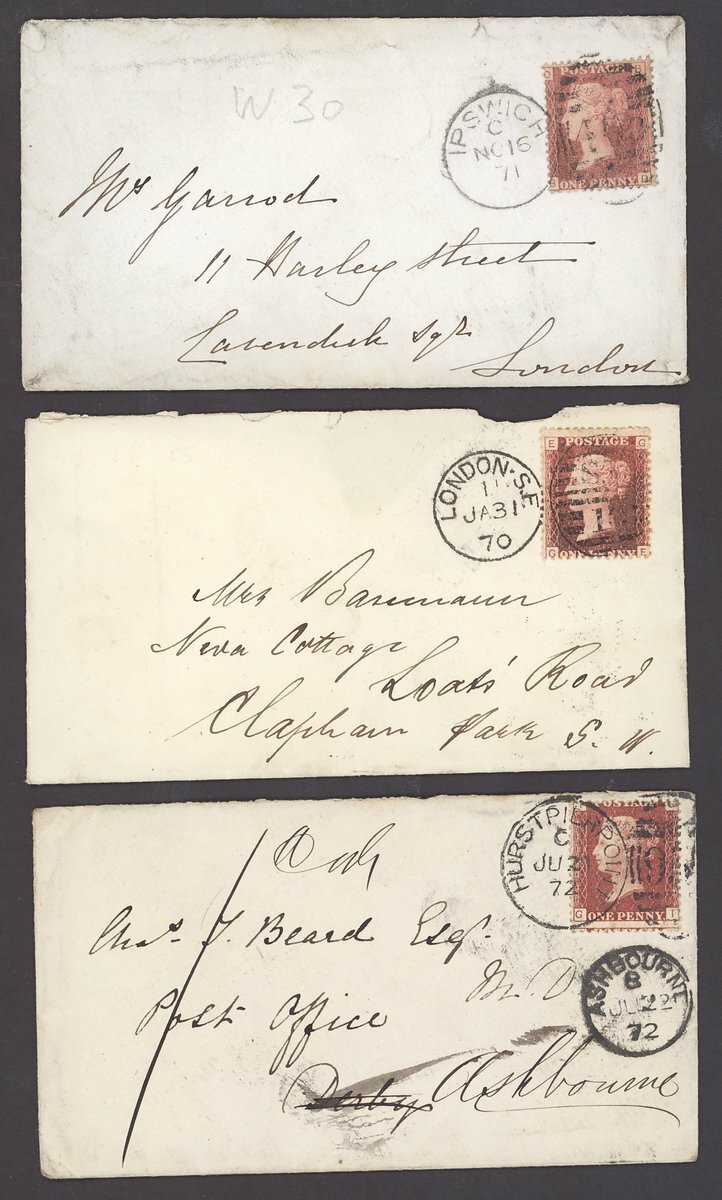 W 30
IPSWICH
C
NO 16
71
POSTAGE
ONE PENNY
B D
Mrs Garrod
11 Harley Street
Cavendish Sqr
London
LONDON·S.E
11
JA 31
70
E POSTAGE G
G ONE PENNY E
Mrs
Neva Cottage
Loats' Road
Clapham Park S. W.
HURSTPIERPOINT
C
JU 21
72
POSTAGE
9
G ONE PENNY I
Chas. J. Beard Esqr.
M. D
Post Office
Derby Ashbourne
ASHBOURNE
8
JU 22
72